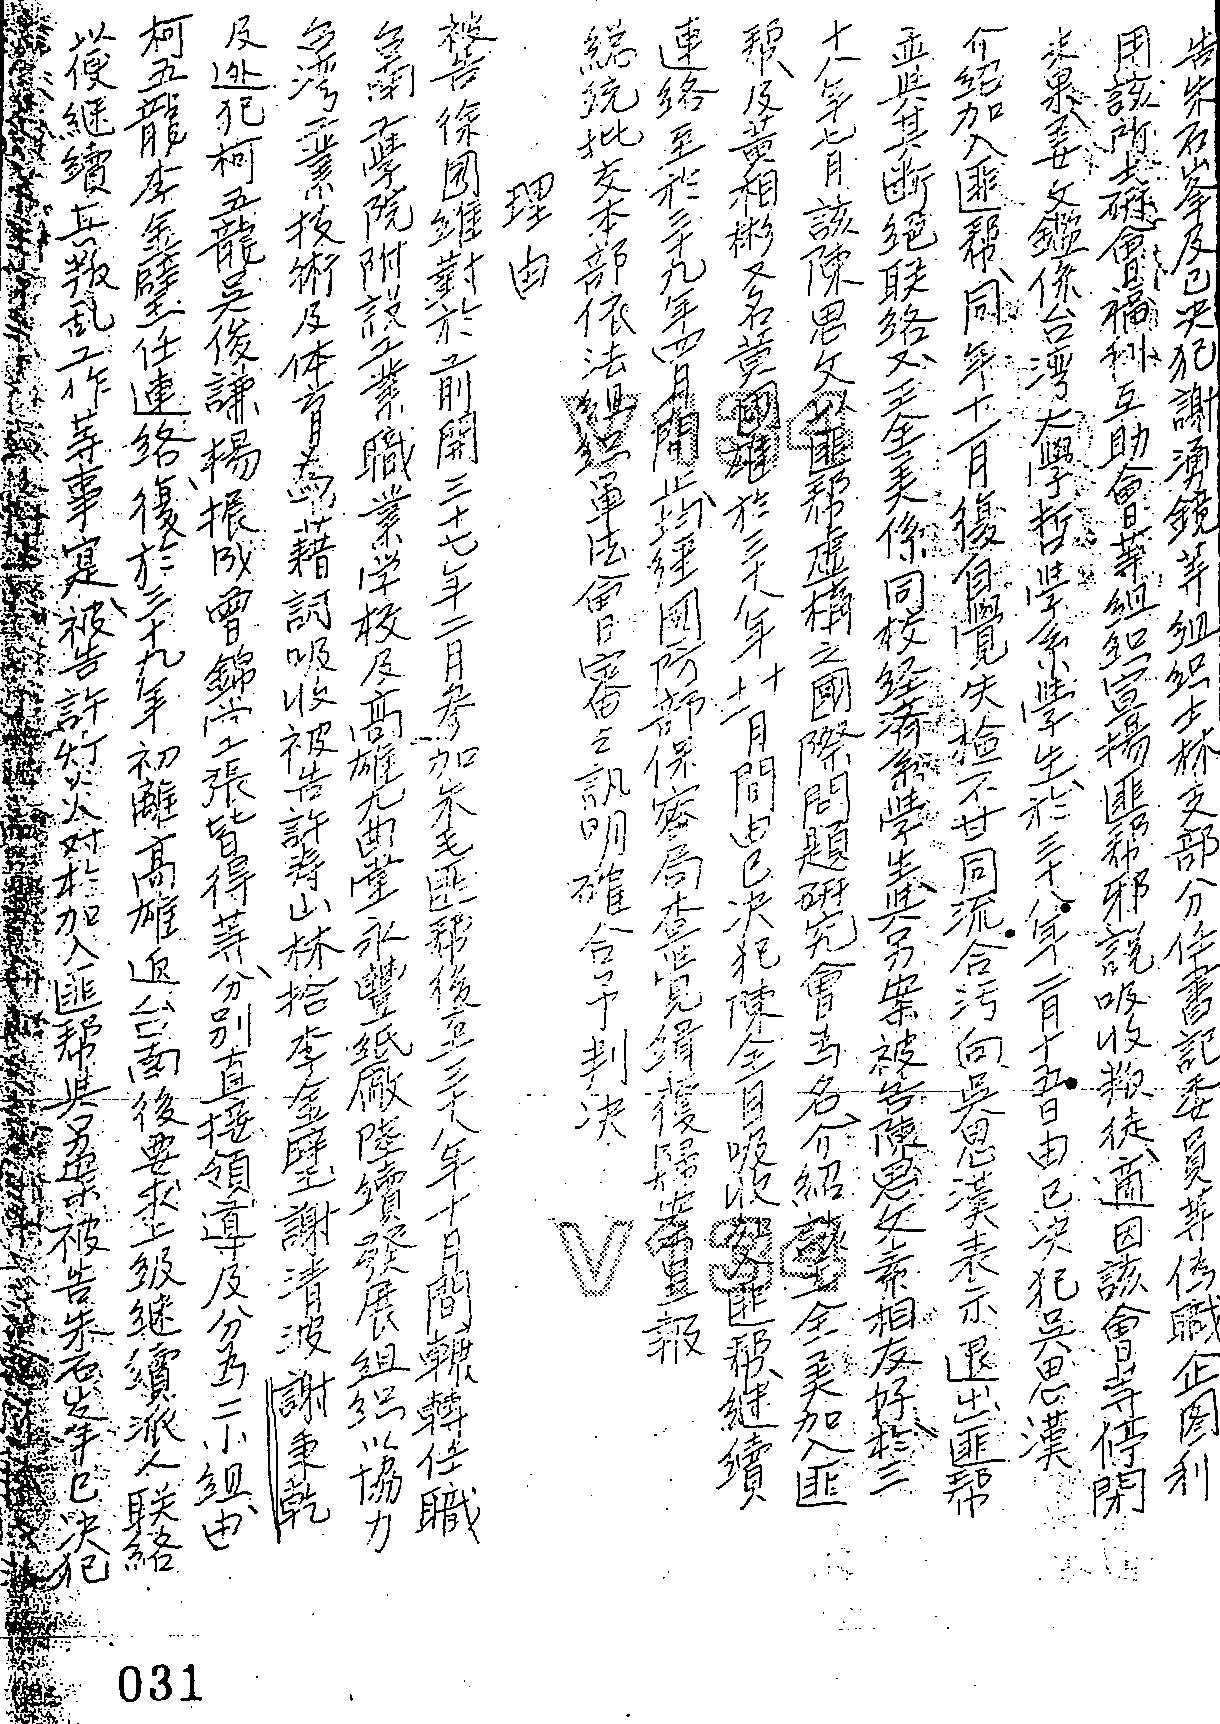 告朱石峯及已決犯謝湧鏡等組織士林支部分任書記委員等偽職企圖利
用該所士礎會福利互助會等組織宣揚匪幫邪說吸收叛徒適因該會等停閉
未果姜文鑑係台灣大學哲學系學生於三十八年二月十五日由已決犯吳思漢
介紹加入匪幫同年十一月復自覺失檢不甘同流合污向吳思漢表示退出匪幫
並與其斷絕联络又王全美係同校经濟系學生與另案被告陳思文素相友好於三
十八年七月該陳思文以匪帮虛構之國際問題研究會為名介紹王全美加入匪
帮及黃相彬又名黃國雄於三十八年十、十一月間由已決犯陳全目吸收加入匪帮継續
連络至於三十九年四月間止均經國防部保密局查覺缉獲歸案呈報
總統批交本部依法組織軍法會日審之訊明確合予判决
理由
被告徐國維對於上開三十七年二月参加朱毛匪幫後至三十八年十月間輾轉任職
台南工學院附設工業職業学校及高雄九曲堂永豐紙廠陸續發展組织以協力
台湾工業技術及体育為藉詞吸收被告許寿山林拾李金壁謝清波謝秉乾
及逃犯柯五龍吳俊謙楊振成曾錦堂張皆得等分别直接領導及分為二小組由
柯五龍李金壁任連络復於三十九年初離高雄返台南後要求上级継續派人联絡
以便継續兵叛乱工作等事寔被告許灯火对於加入匪帮與另案被告朱石峯已决犯
031